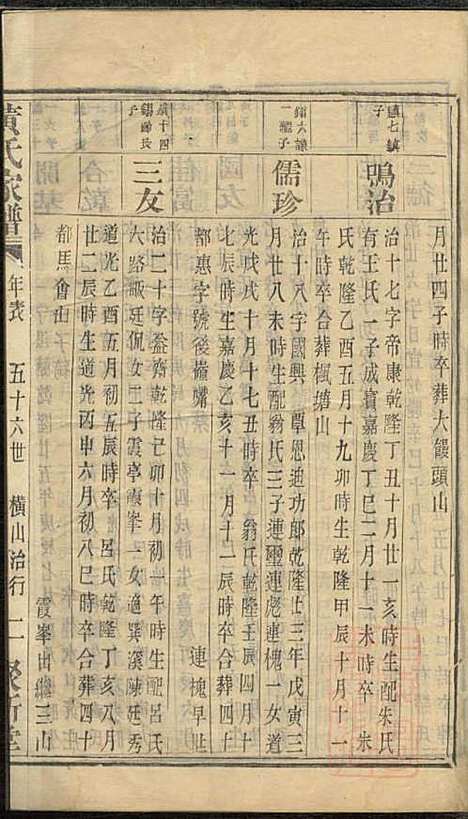 月廿四子時卒葬大饅頭山
鎮七鎮
子
鳴治
治十七字帝康乾隆丁丑十月廿一亥時生配朱氏
有王氏一子成寶嘉慶丁巳二月十一未時卒 朱
氏乾隆乙酉五月十九卯時生乾隆甲辰十月十一
午時卒合葬楓塘山
鏽六讓
二繼子
儒珍
治十八字國興 覃恩迪功郎乾隆廿三年戊寅三
月廿八未時生配翁氏三子連璽連彪連槐一女道
光戊戌十月十七丑時卒 翁氏乾隆癸未四月十
七辰時生嘉慶乙亥十一月十二辰時卒合葬四十
都惠字號後嶺嘴 連槐早世
鎮十四
錫爵長
子
三友
治二十字益齊乾隆己卯十月初一午時生配呂氏
大路畈廷侃女二子霞亭霞峯一女適箕溪陳廷秀
道光乙酉五月初五辰時卒 呂氏乾隆丁亥八月
廿二辰時生道光丙申六月初八巳時卒合葬四十
都馬會山
霞峯出繼三山
黃氏家譜
年表 五十六世 橫山治行 二 聚斯堂